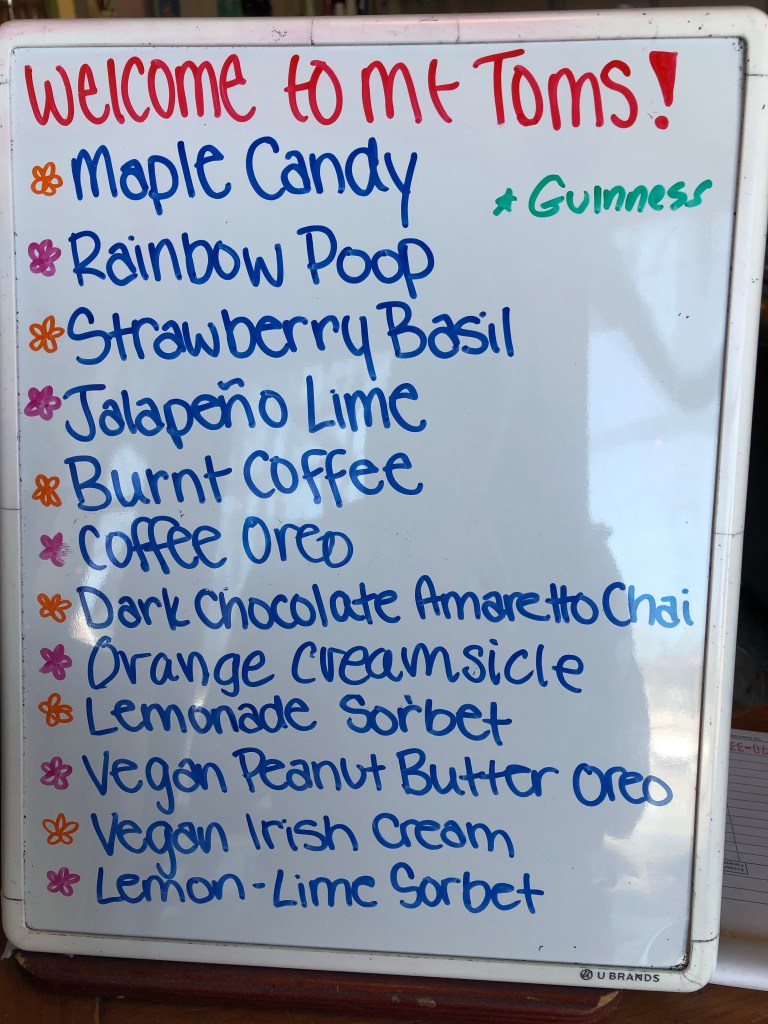 Welcome to Mt Toms!
Maple Candy
* Guinness
Rainbow Poop
Strawberry Basil
Jalapeño Lime
Burnt Coffee
Coffee Oreo
Dark Chocolate Amaretto Chai
Orange Creamsicle
Lemonade Sorbet
Vegan Peanut Butter Oreo
Vegan Irish Cream
Lemon-Lime Sorbet
U BRANDS